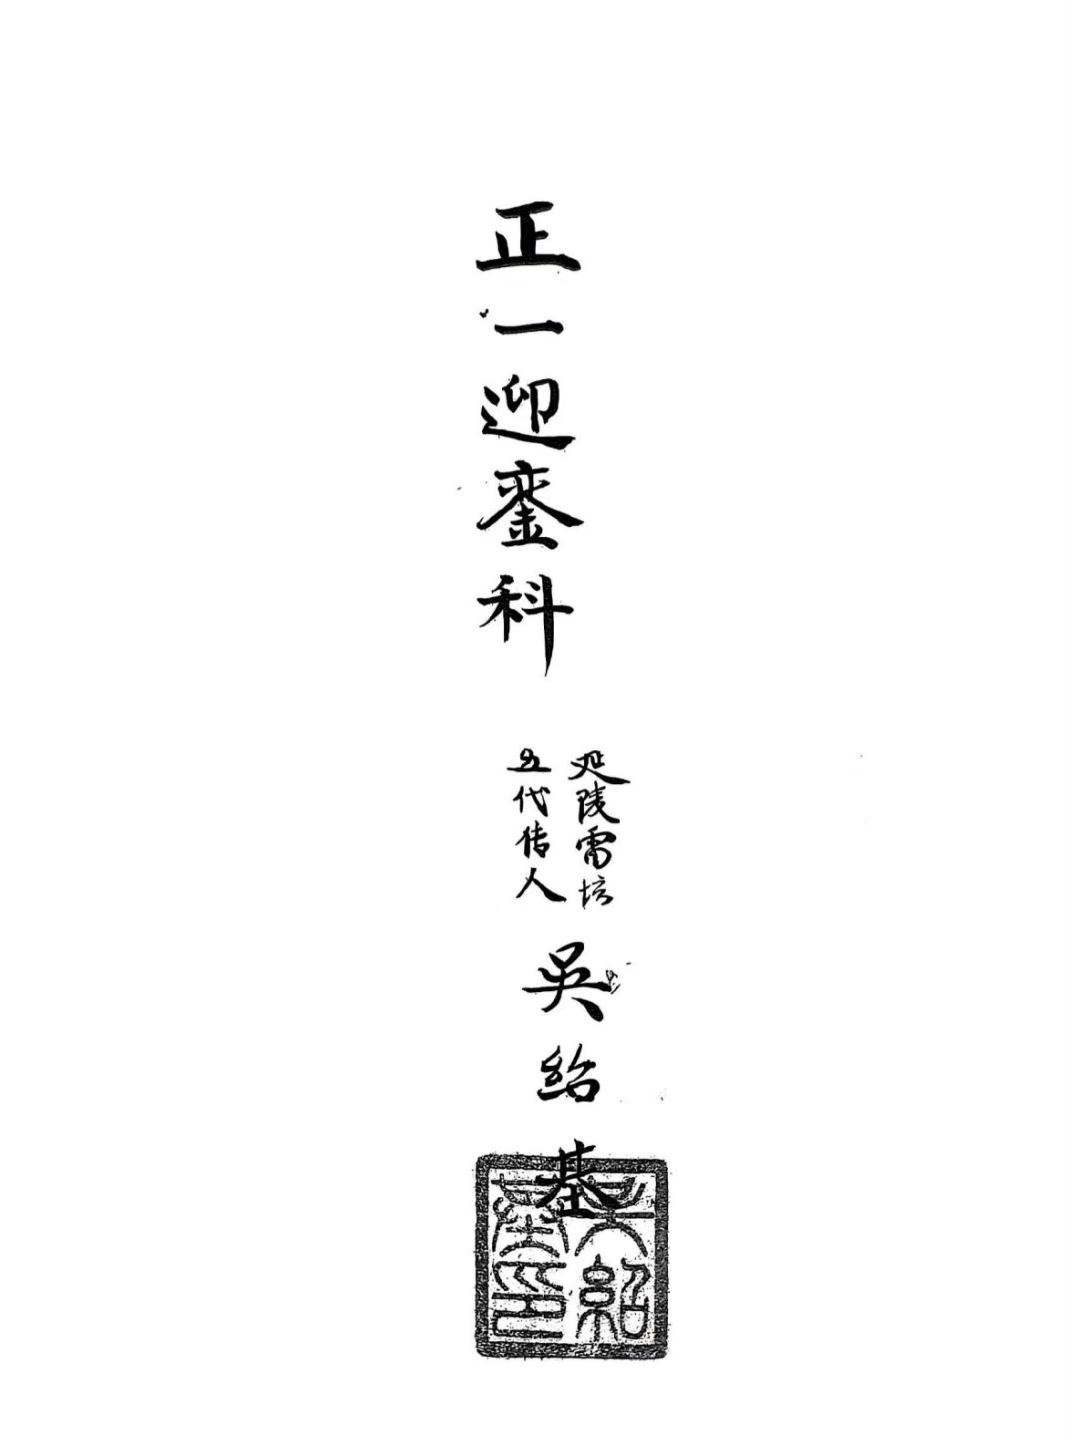 正一迎銮科
延陵雷坛
五代传人
吳紹基
吳紹基印